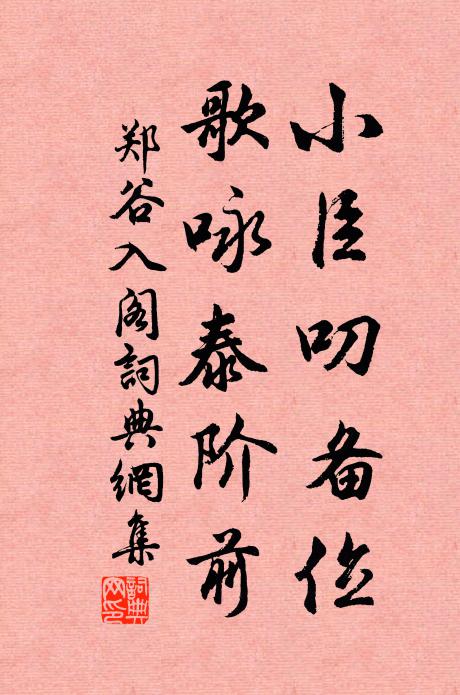 小臣叨备位
歌咏泰阶前
郑谷入阁詞典網集
詞典网印